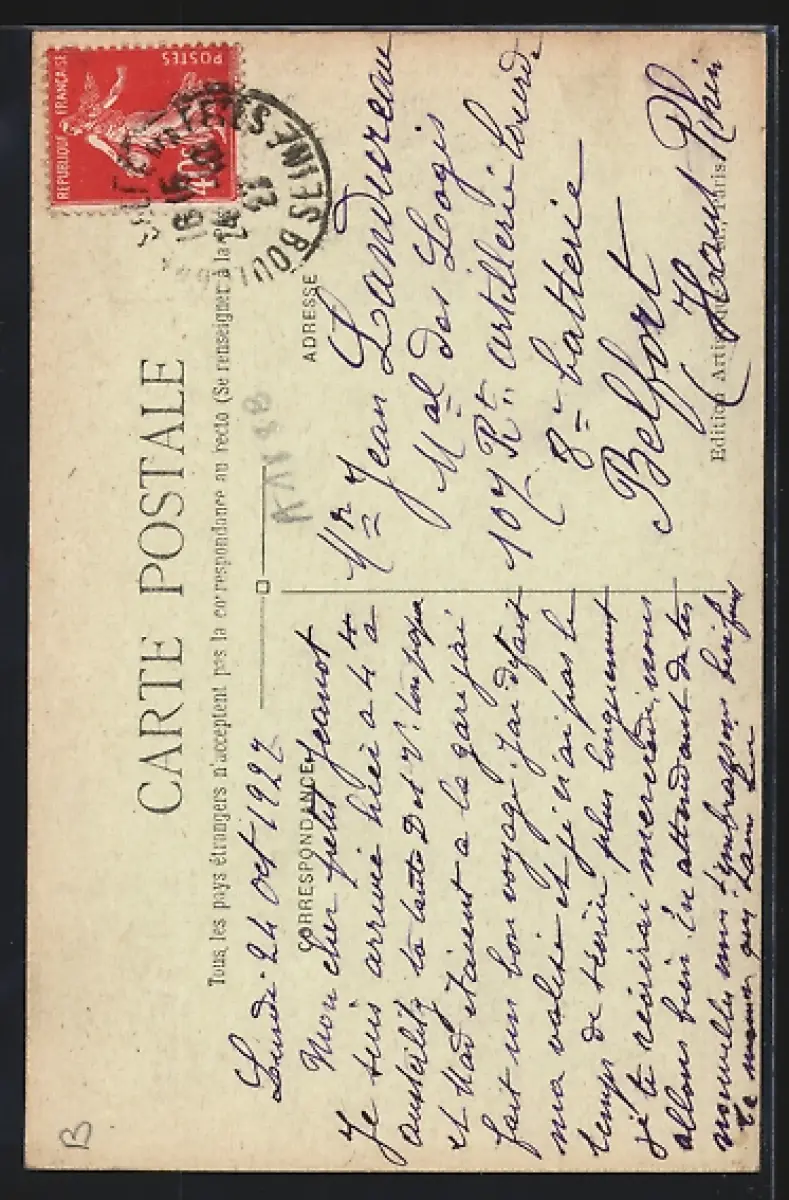 CARTE POSTALE
Tous les pays étrangers n'acceptent pas la correspondance au recto (Se renseigner à la
CORRESPONDANCE
Lundi 24 Oct 1927
Mon cher petit Jeanot
Je suis arrivée hier a 4 h a
austerlitz la tante D et V. ton papa
et Mad étaient a la gare j'ai
fait un bon voyage. J'ai défait
ma valise et je n'ai pas le
temps de t'écrire plus longuement
je te récrirai mercredi, nous
allons bien. En attendant de tes
nouvelles nous t'embrassons bien fort
ta maman qui t'aime bien
ADRESSE
Mr Jean Landureau
Mal des Logis
107 Rt artillerie lourde
8e batterie
Belfort
(Haut Rhin
Edition Artistique Paris
REPUBLIQUE FRANÇAISE
POSTES
40c
SEINE
A1188
B